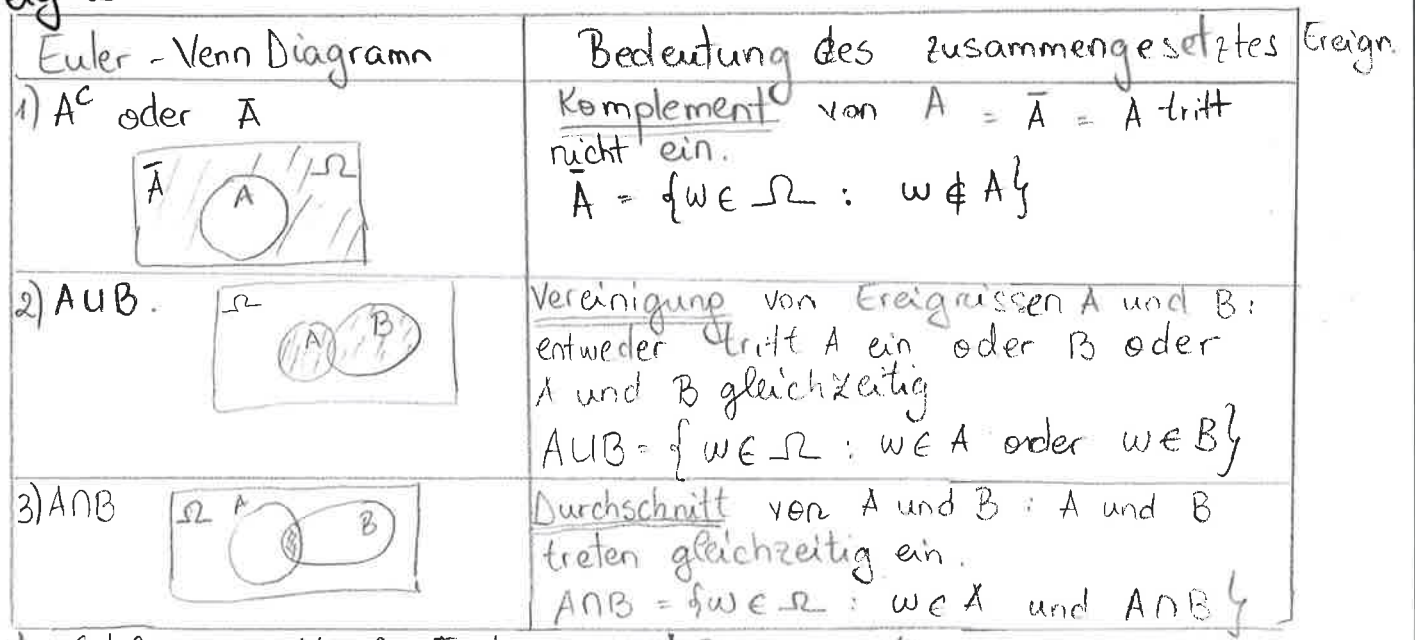 Euler-Venn Diagramm
Bedeutung des zusammengesetztes Ereign.
1) Aᶜ oder Ā
Ā A Ω
Komplement von A = Ā = A tritt
nicht ein.
Ā = {ω ∈ Ω : ω ∉ A}
2) A∪B.
Ω A B
Vereinigung von Ereignissen A und B:
entweder tritt A ein oder B oder
A und B gleichzeitig
A∪B = {ω ∈ Ω : ω ∈ A oder ω ∈ B}
3) A∩B
Ω A B
Durchschnitt von A und B : A und B
treten gleichzeitig ein.
A∩B = {ω ∈ Ω : ω ∈ A und A∩B}